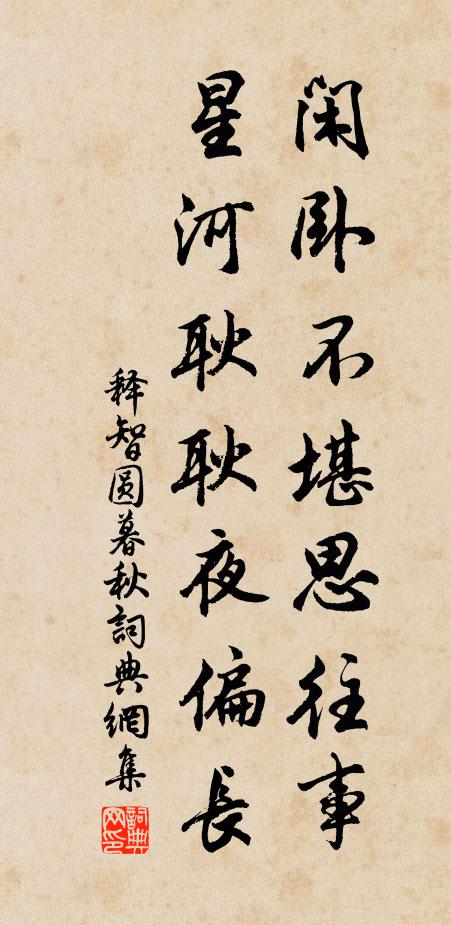 閑卧不堪思往事
星河耿耿夜偏長
释智圆暮秋詞典網集
詞典网印